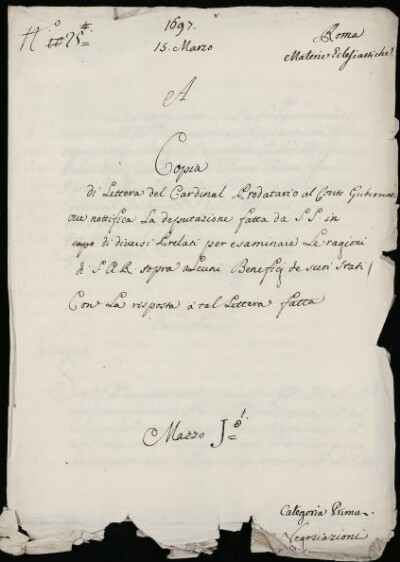 1697.
15. Marzo
Roma
Materie Eclesiastiche.
A
Copia
di Lettera del Cardinal Prodatario al Conte Gubernatis
ove nottifica La deputazione fatta da S. S. in
capo di diversi Prelati per esaminare Le ragioni
di S. A. R. sopra alcuni Beneficj de suoi Stati
Con La risposta a tal Lettera fatta
Mazzo
Categoria Prima.
Negoziazioni